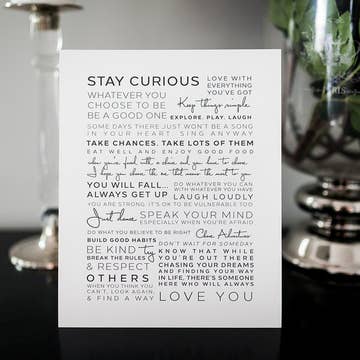 STAY CURIOUS
LOVE WITH
EVERYTHING
YOU'VE GOT
WHATEVER YOU
CHOOSE TO BE
BE A GOOD ONE
Keep things simple
EXPLORE. PLAY. LAUGH
SOME DAYS THERE JUST WON'T BE A SONG
IN YOUR HEART. SING ANYWAY
TAKE CHANCES, TAKE LOTS OF THEM
EAT WELL AND ENJOY GOOD FOOD
when you're faced with a choice and you have to choose
I hope you choose the one that means the most to you
YOU WILL FALL...
ALWAYS GET UP
DO WHATEVER YOU CAN
WITH WHATEVER YOU HAVE
LAUGH LOUDLY
YOU ARE STRONG, IT'S OK TO BE VULNERABLE TOO
Just dance
SPEAK YOUR MIND
ESPECIALLY WHEN YOU'RE AFRAID
DO WHAT YOU BELIEVE TO BE RIGHT
Chase Adventures
BUILD GOOD HABITS
BE KIND try
BREAK THE RULES
& RESPECT
OTHERS
WHEN YOU THINK YOU
CAN'T, LOOK AGAIN,
& FIND A WAY
DON'T WAIT FOR SOMEDAY
KNOW THAT WHILE
YOU'RE OUT THERE
CHASING YOUR DREAMS
AND FINDING YOUR WAY
IN LIFE, THERE'S SOMEONE
HERE WHO WILL ALWAYS
LOVE YOU